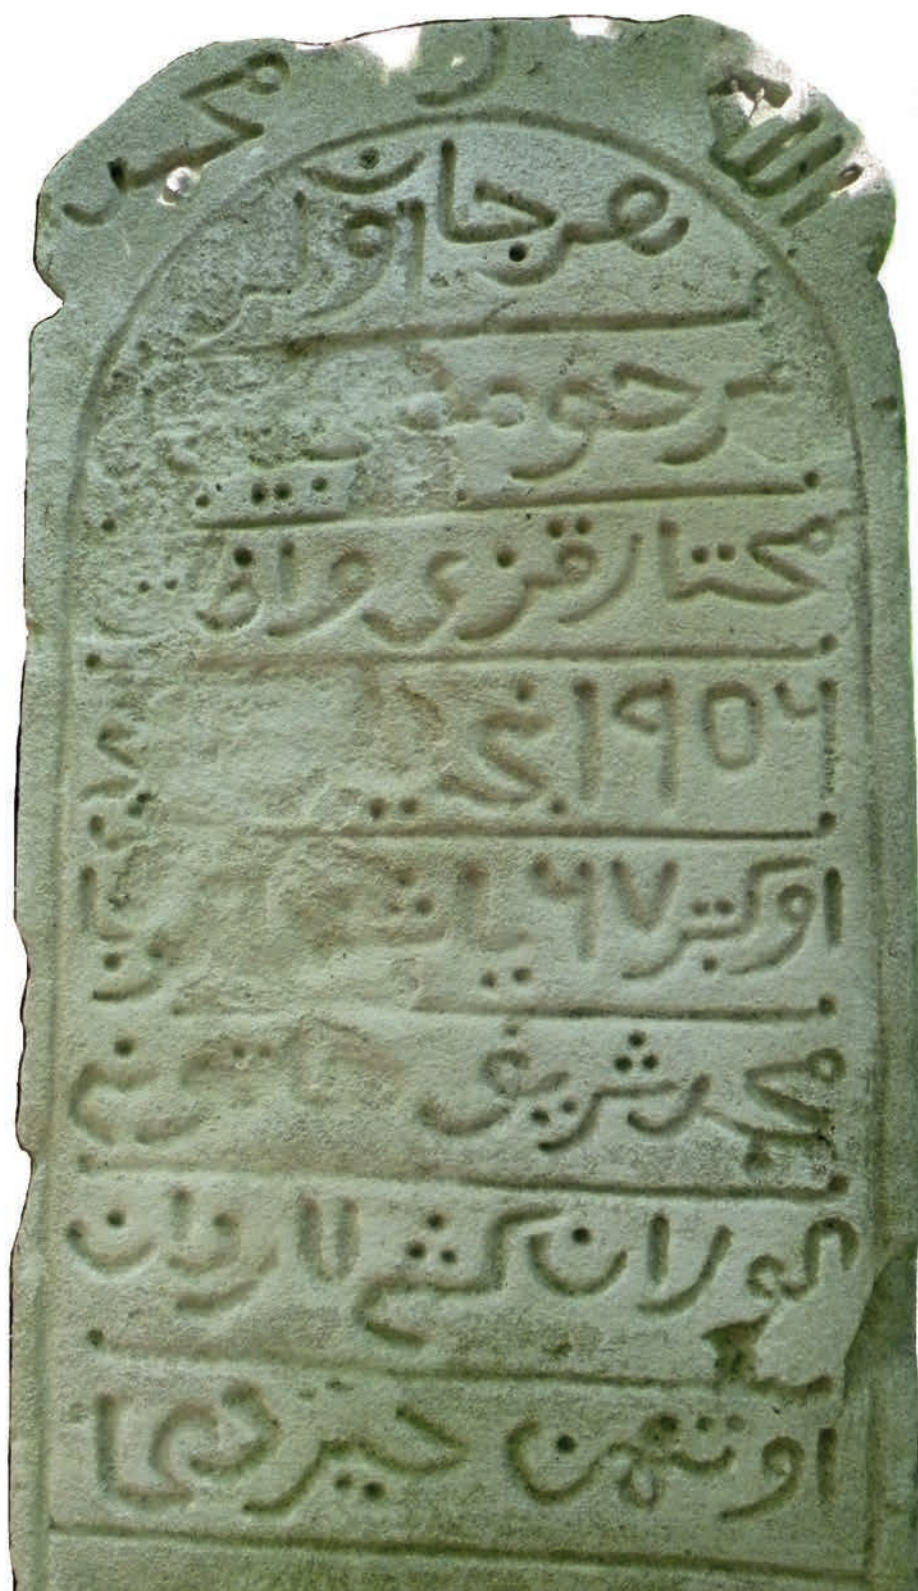 الله و محمد
هر جان اولر
مرحومه
مختار قزى وافات
١٩٥٦ نجى
اوكتبر ٦٧ ياش
محمد شريف خاتونى
كوران كشى لاردان
اوتنهن خير دعا